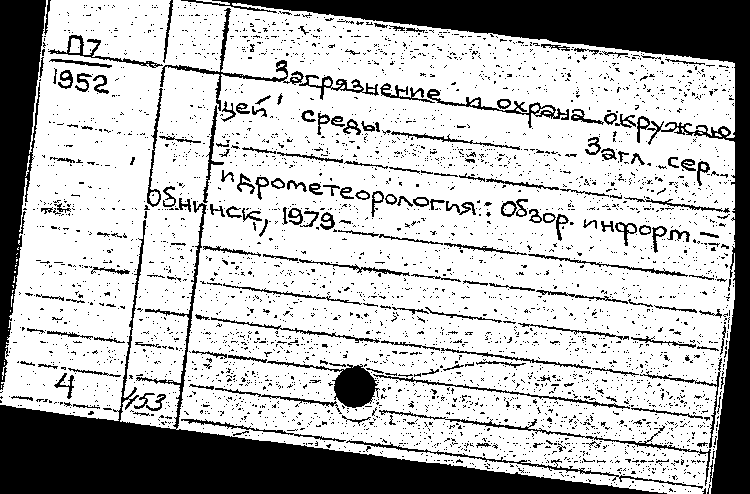 П7
1952
Загрязнение и охрана окружаю-
щей среды. Загл. сер.
Гидрометеорология: Обзор. информ. —
Обнинск, 1979 —
4
453